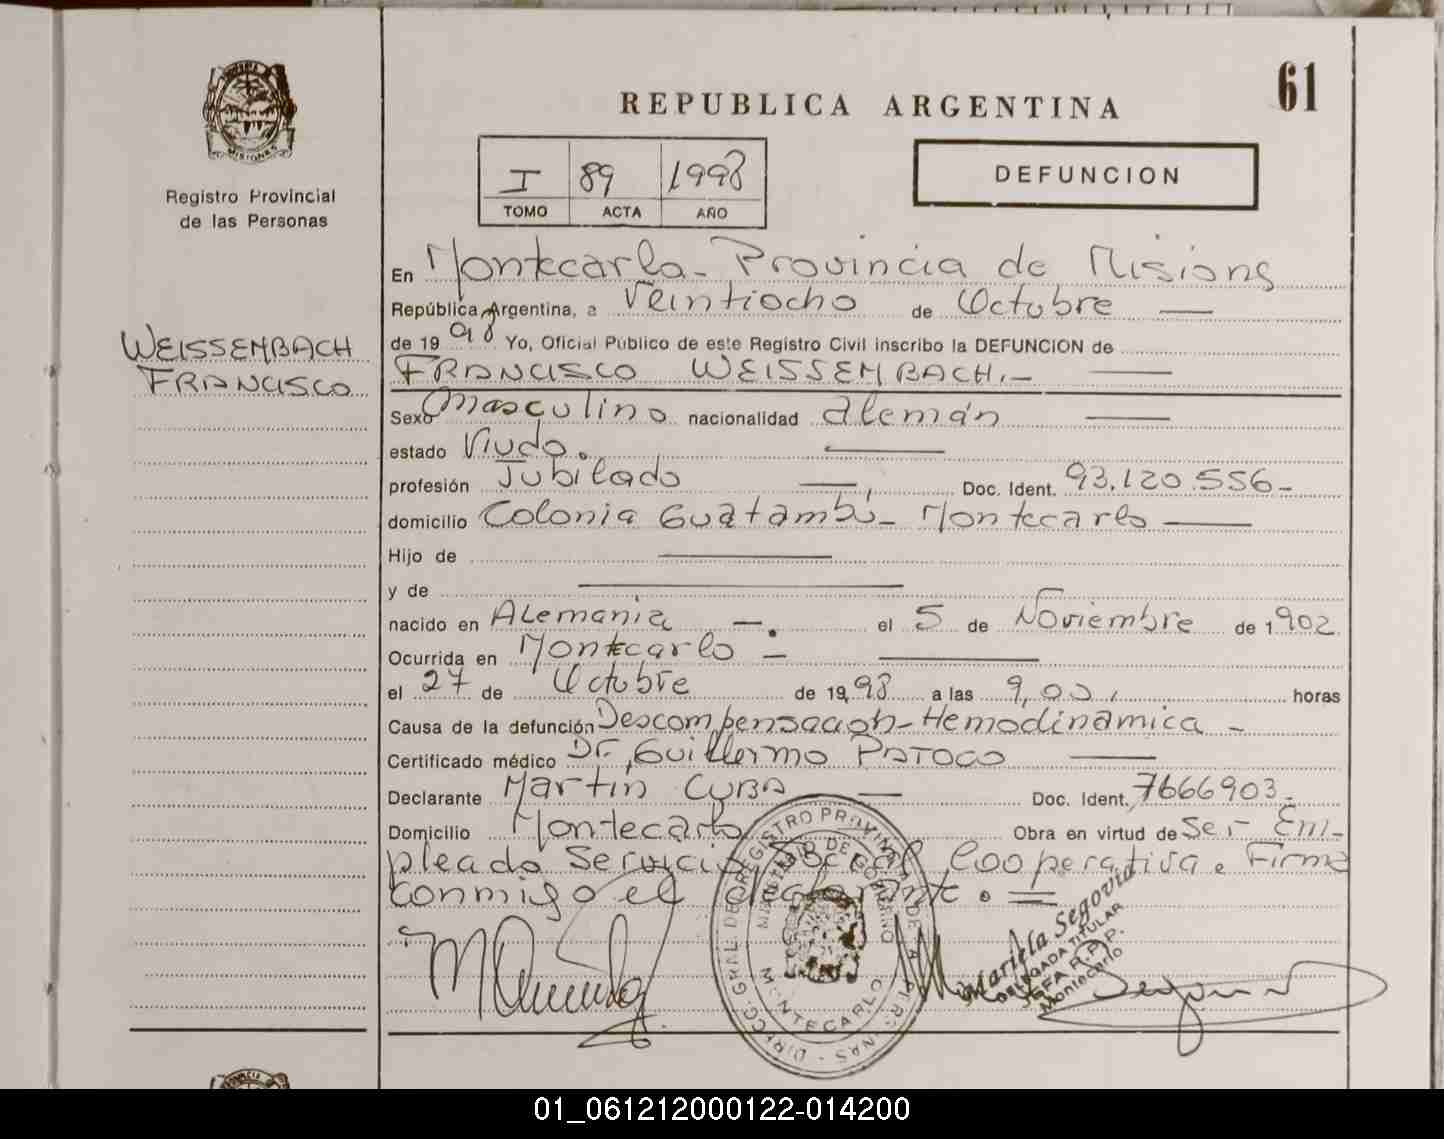 61
REPUBLICA ARGENTINA
MISIONES
Registro Provincial
de las Personas
I 89 1998
TOMO ACTA AÑO
DEFUNCION
WEISSEMBACH
FRANCISCO
En Montecarlo - Provincia de Misions
República Argentina, a Veintiocho de Octubre
de 1998 Yo, Oficial Público de este Registro Civil inscribo la DEFUNCION de
FRANCISCO WEISSEMBACH.-
Sexo masculino nacionalidad alemán
estado Viudo.
profesión Jubilado Doc. Ident. 93.120.556-
domicilio Colonia Guatambú - Montecarlo
Hijo de
y de
nacido en Alemania -. el 5 de Noviembre de 1902
Ocurrida en Montecarlo -
el 27 de Octubre de 1998 a las 9,00, horas
Causa de la defunción Descompensación-Hemodinámica -
Certificado médico Dr. Guillermo
Declarante Martin CUBA Doc. Ident. 7666903-
Domicilio Montecarlo Obra en virtud de ser Em-
pleado Servicio Social Cooperativa. Firma
conmigo el declarante. =
DIRECC. GRAL. DE REGISTRO PROVINCIAL DE LAS PERSONAS
MINISTERIO DE GOBIERNO
MONTECARLO
Mariela Segovia
DELEGADA TITULAR
JEFA R.P.P.
Montecarlo
01_061212000122-014200